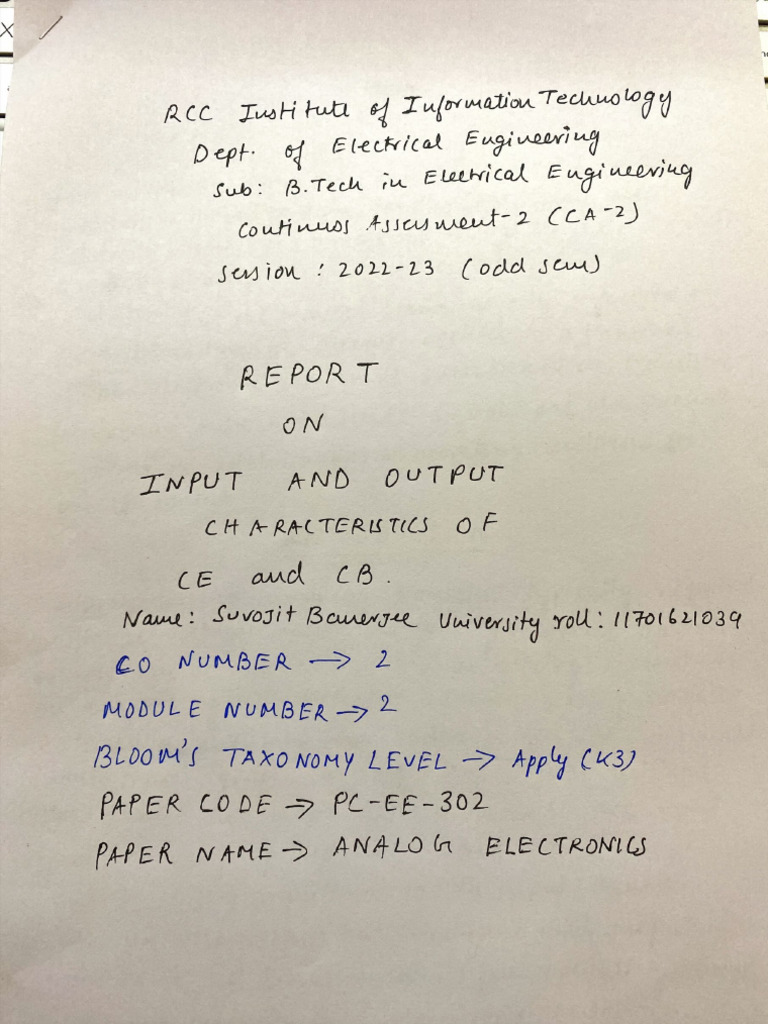 RCC Institute of Information Technology
Dept. of Electrical Engineering
Sub: B.Tech in Electrical Engineering
Continuos Assessment-2 (CA-2)
Session : 2022-23 (odd sem)
REPORT
ON
INPUT AND OUTPUT
CHARACTERISTICS OF
CE and CB.
Name: Suvojit Banerjee University roll: 11701621039
CO NUMBER → 2
MODULE NUMBER → 2
BLOOM'S TAXONOMY LEVEL → Apply (K3)
PAPER CODE → PC-EE-302
PAPER NAME → ANALOG ELECTRONICS